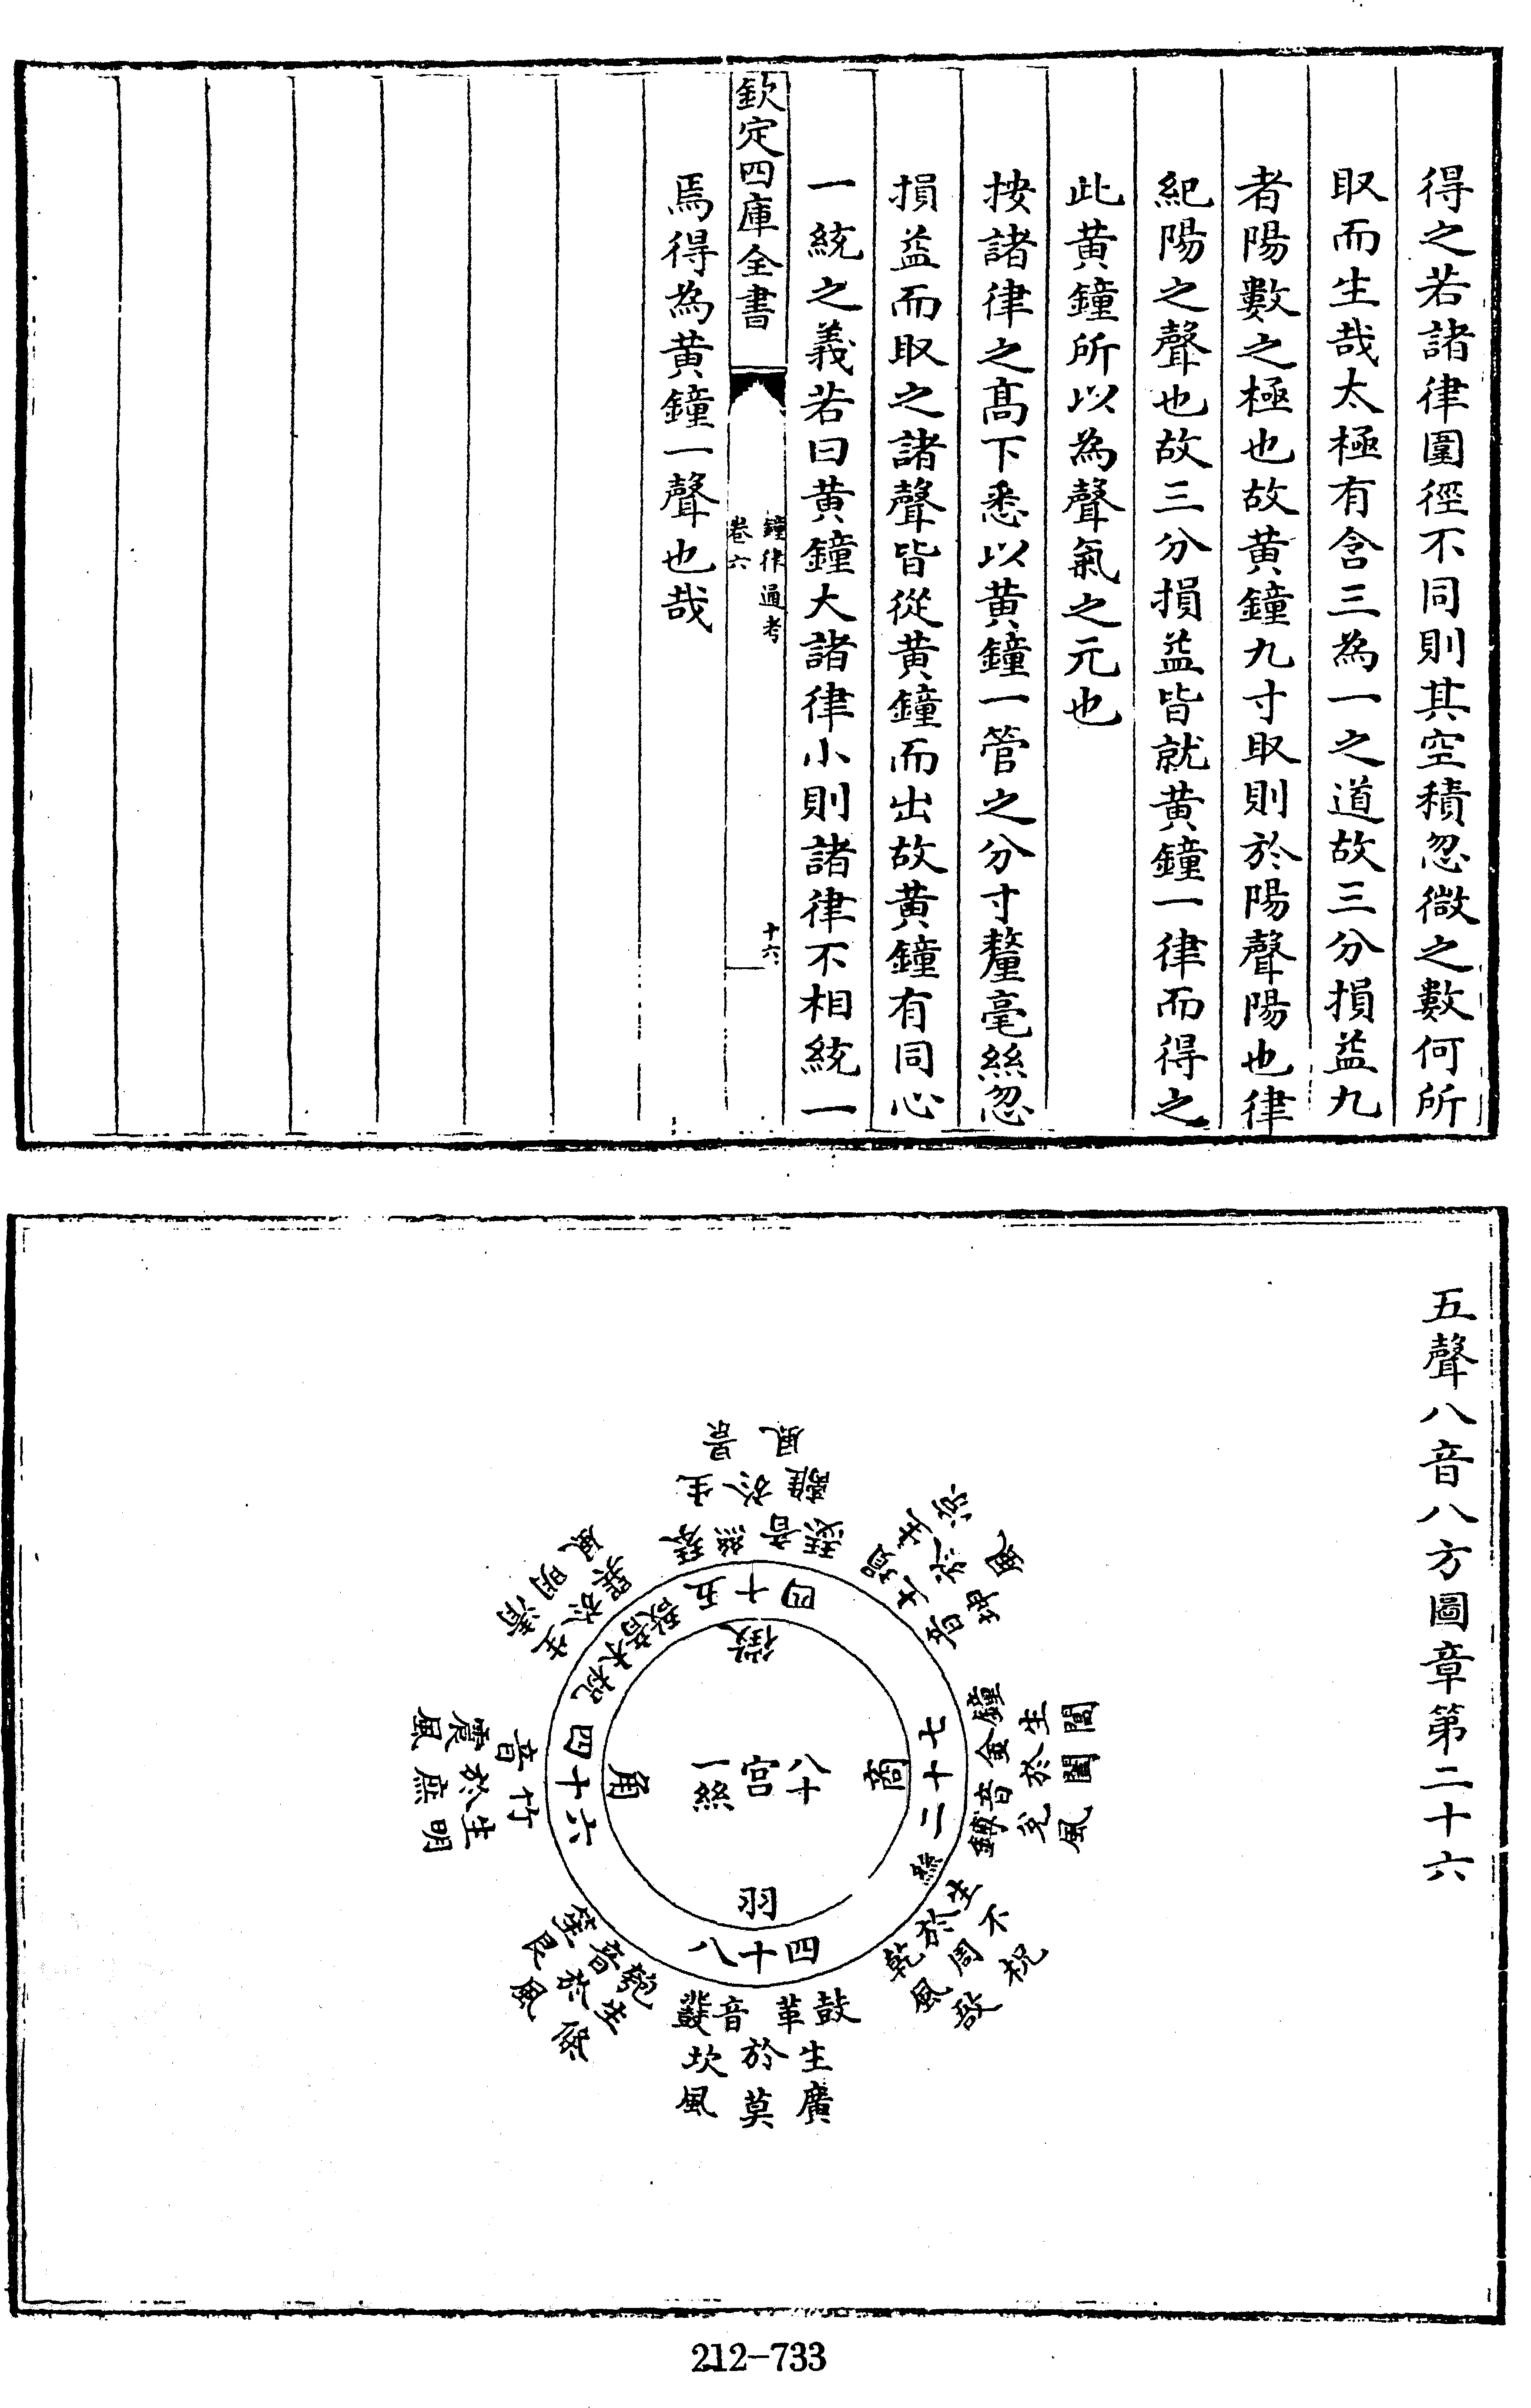 得之若諸律圍徑不同則其空積忽微之數何所
取而生哉太極有含三為一之道故三分損益九
者陽數之極也故黄鐘九寸取則於陽聲陽也律
紀陽之聲也故三分損益皆就黄鐘一律而得之
此黄鐘所以為聲氣之元也
按諸律之髙下悉以黄鐘一管之分寸釐毫絲忽
損益而取之諸聲皆從黄鐘而出故黄鐘有同心
一統之義若曰黄鐘大諸律小則諸律不相統一
欽定四庫全書
鐘律通考
卷六
十六
焉得為黄鐘一聲也哉
五聲八音八方圖章第二十六
八十
宮
一絲
徵
四十五
琴絲音瑟
生於離
景風
生於坤
風
商
七十二
絲
鐘金音鏄
生於兌
閶闔風
生於乾
不周風
柷敔
羽
四十八
鼓革音鼗
生於坎
廣莫風
匏音笙
生於艮
條風
角
四十六
竹音
生於震
明庶風
柷木音敔
生於巽
清明風
212-733